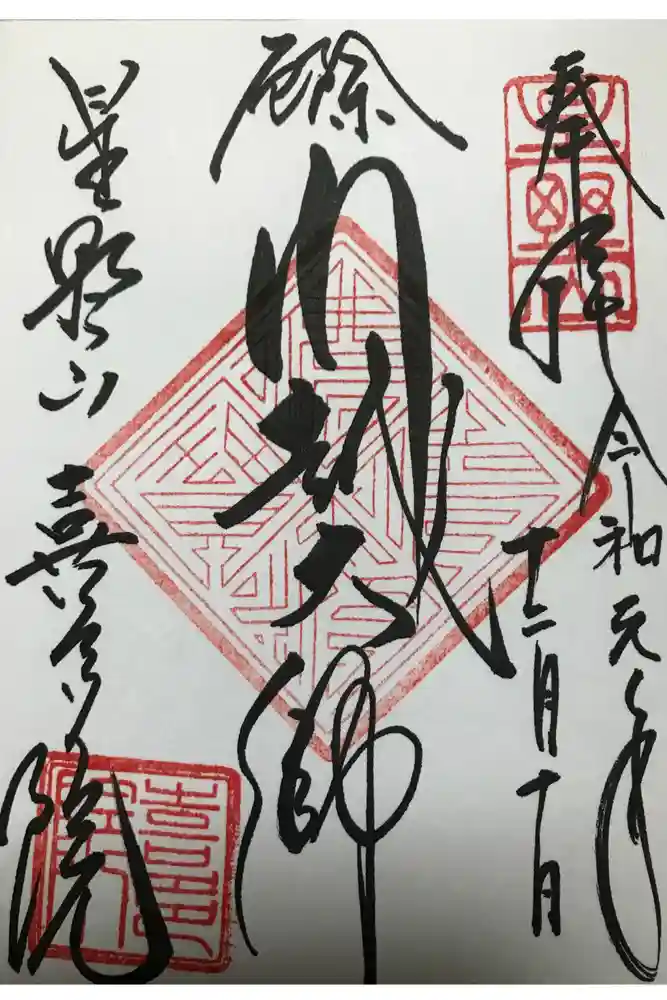 奉拝 令和元年
十二月十日
厄除
川越大師
星野山 喜多院